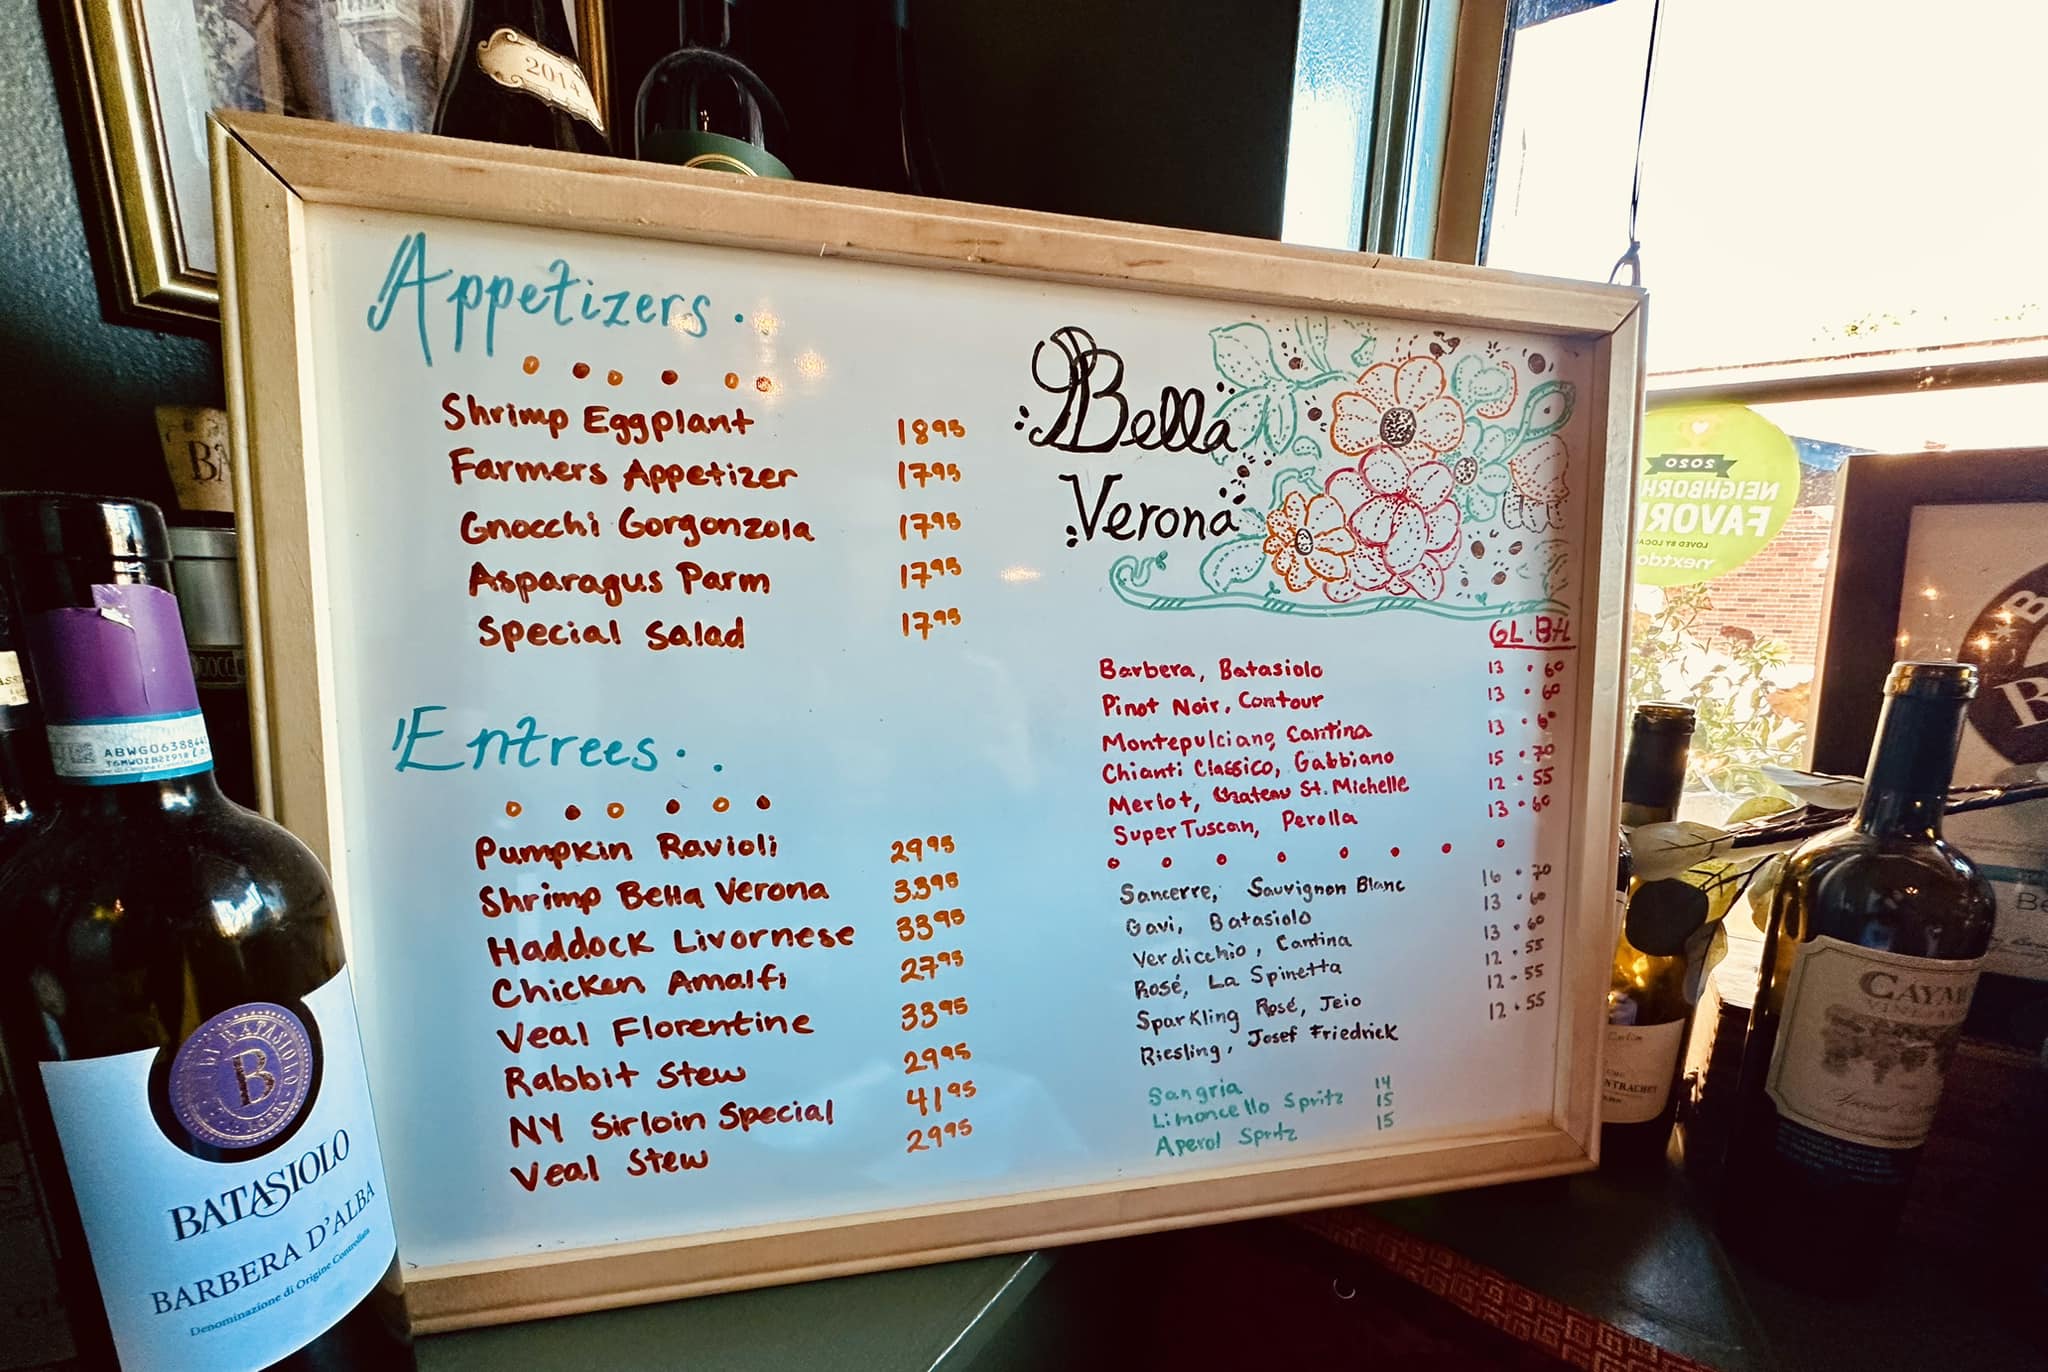 2014
Appetizers.
Shrimp Eggplant 18 95
Farmers Appetizer 17 95
Gnocchi Gorgonzola 17 95
Asparagus Parm 17 95
Special Salad 17 95
Entrees.
Pumpkin Ravioli 29 95
Shrimp Bella Verona 33 95
Haddock Livornese 33 95
Chicken Amalfi 27 95
Veal Florentine 33 95
Rabbit Stew 29 95
NY Sirloin Special 41 95
Veal Stew 29 95
Bella
Verona
GL. Btl
Barbera, Batasiolo 13 • 60
Pinot Noir, Contour 13 • 60
Montepulciano, Cantina 13 • 60
Chianti Classico, Gabbiano 15 • 70
Merlot, Chateau St. Michelle 12 • 55
Super Tuscan, Perolla 13 • 60
Sancerre, Sauvignon Blanc 16 • 70
Gavi, Batasiolo 13 • 60
Verdicchio, Cantina 13 • 60
Rosé, La Spinetta 12 • 55
Sparkling Rosé, Jeio 12 • 55
Riesling, Josef Friedrick 12 • 55
Sangria 14
Limoncello Spritz 15
Aperol Spritz 15
B
BATASIOLO
BARBERA D'ALBA
Denominazione di Origine Controllata
2020
NEIGHBORH
FAVORI
LOVED BY LOCA
nextdo
CAYM